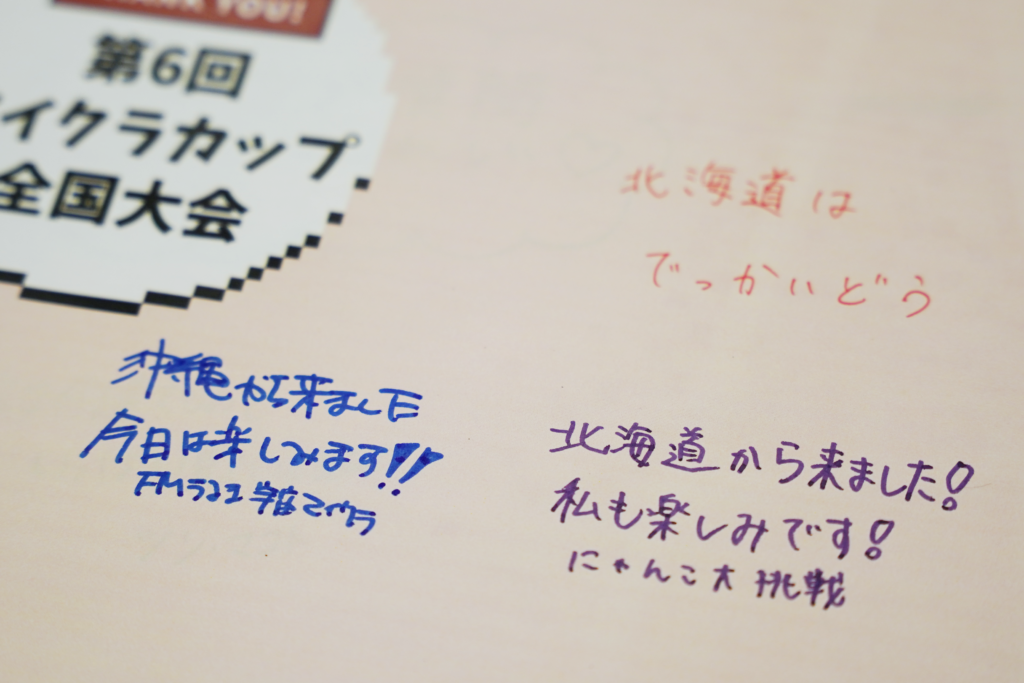 THANK YOU!
第6回
マイクラカップ
全国大会
北海道は
でっかいどう
沖縄から来ました
今日は楽しみます!!
北海道から来ました!
私も楽しみです!
にゃんこ大挑戦